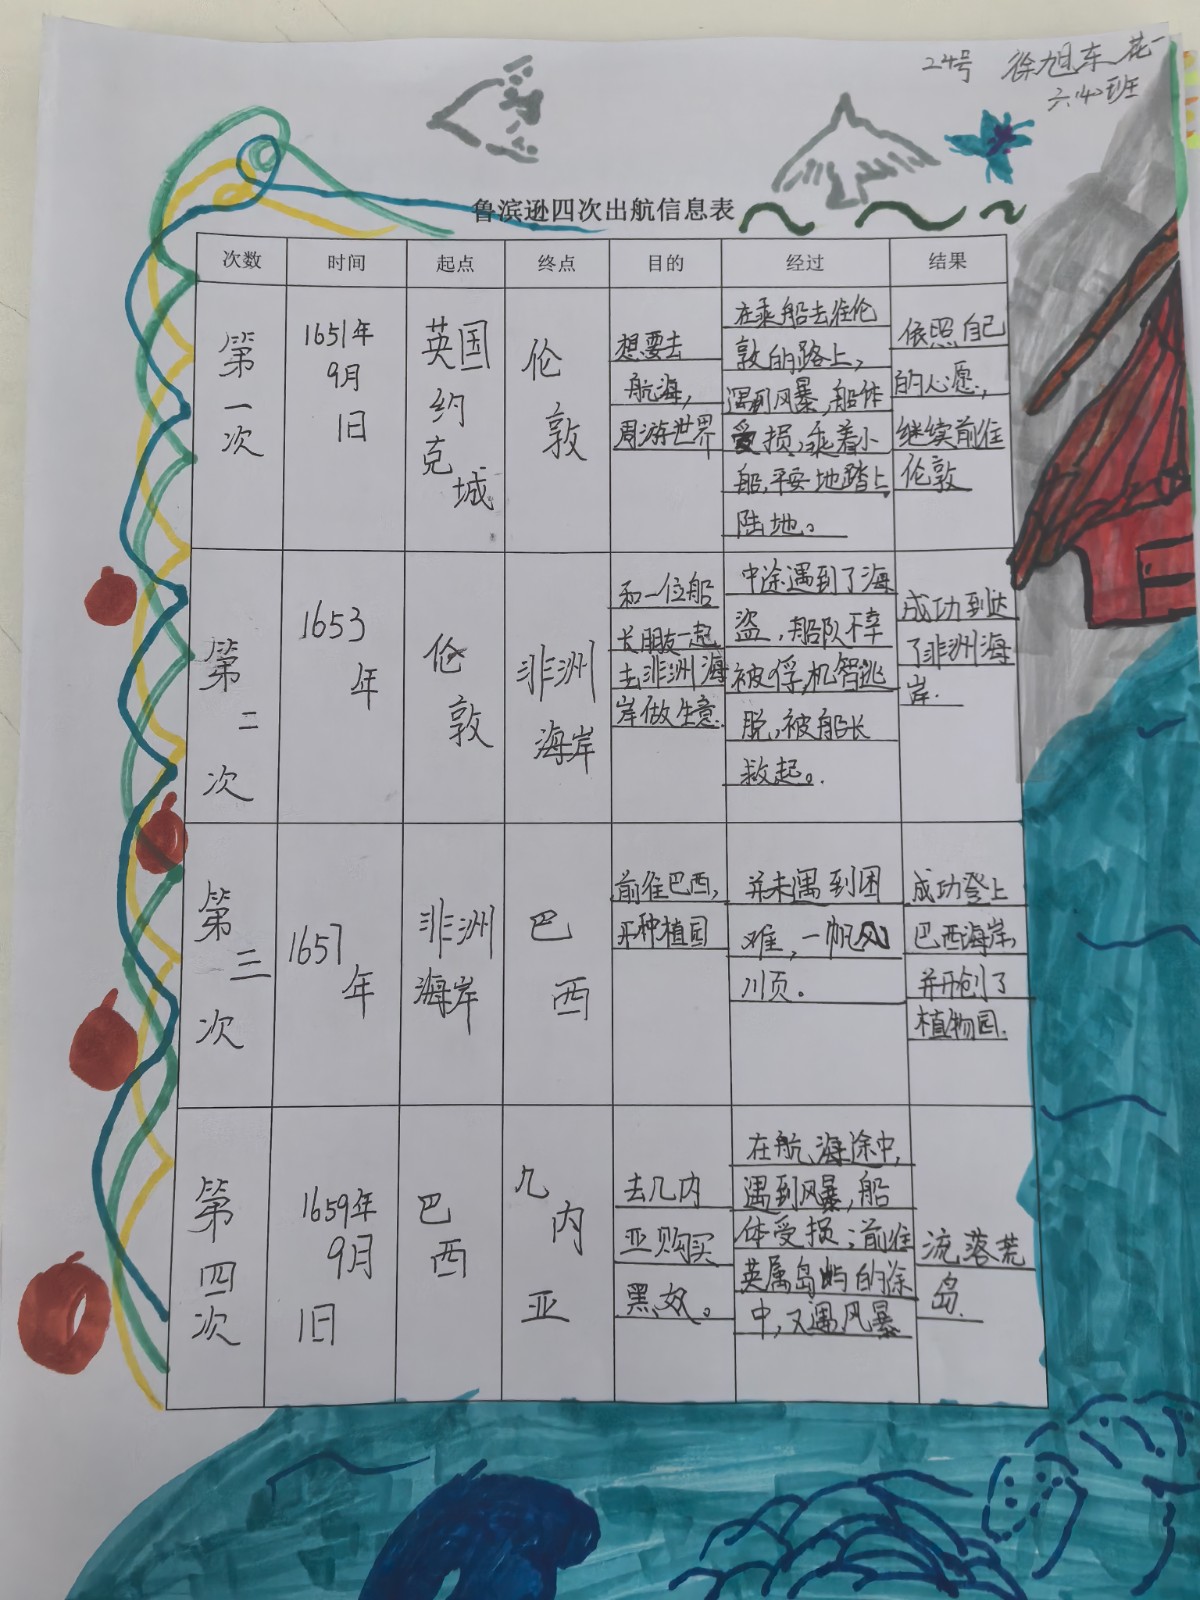 24号 徐旭东 花一
六(4)班
鲁滨逊四次出航信息表
次数 时间 起点 终点 目的 经过 结果
第一次
1651年
9月
1日
英国
约
克
城
伦
敦
想要去
航海,
周游世界
在乘船去往伦
敦的路上,
遇到风暴,船体
受损,乘着小
船,平安地踏上
陆地。
依照自己
的心愿,
继续前往
伦敦
第
二
次
1653
年
伦
敦
非洲
海岸
和一位船
长朋友一起
去非洲海
岸做生意.
中途遇到了海
盗,船队不幸
被俘,机智逃
脱,被船长
救起。
成功到达
了非洲海
岸.
第
三
次
1657
年
非洲
海岸
巴
西
前往巴西,
开种植园
并未遇到困
难,一帆风
川页。
成功登上
巴西海岸,
并开创了
植物园.
第
四
次
1659年
9月
1日
巴
西
几
内
亚
去几内
亚购买
黑奴。
在航海途中,
遇到风暴,船
体受损;前往
英属岛屿的途
中,又遇风暴
流落荒
岛.